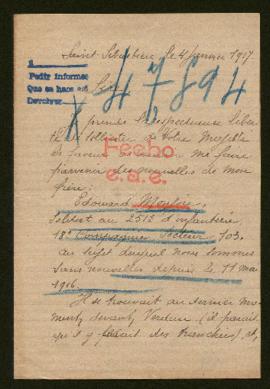 Saint Sébastien le 4 janvier 1917
1
Pedir informes
Que se hace
Devolver
47894
Sire,
prends la respectueuse
de votre Majesté
la faveur de me faire
parvenir des nouvelles de mon
frère:
Fecho
e.a.e.
Edouard
Soldat au 251e d'infanterie
18e Compagnie Secteur 703.
au sujet duquel nous sommes
sans nouvelles depuis le 11 mai
1916.
Il se trouvait au dernier mo-
ment, devant Verdun (il paraît
qu'il y faisait des tranchées), et,